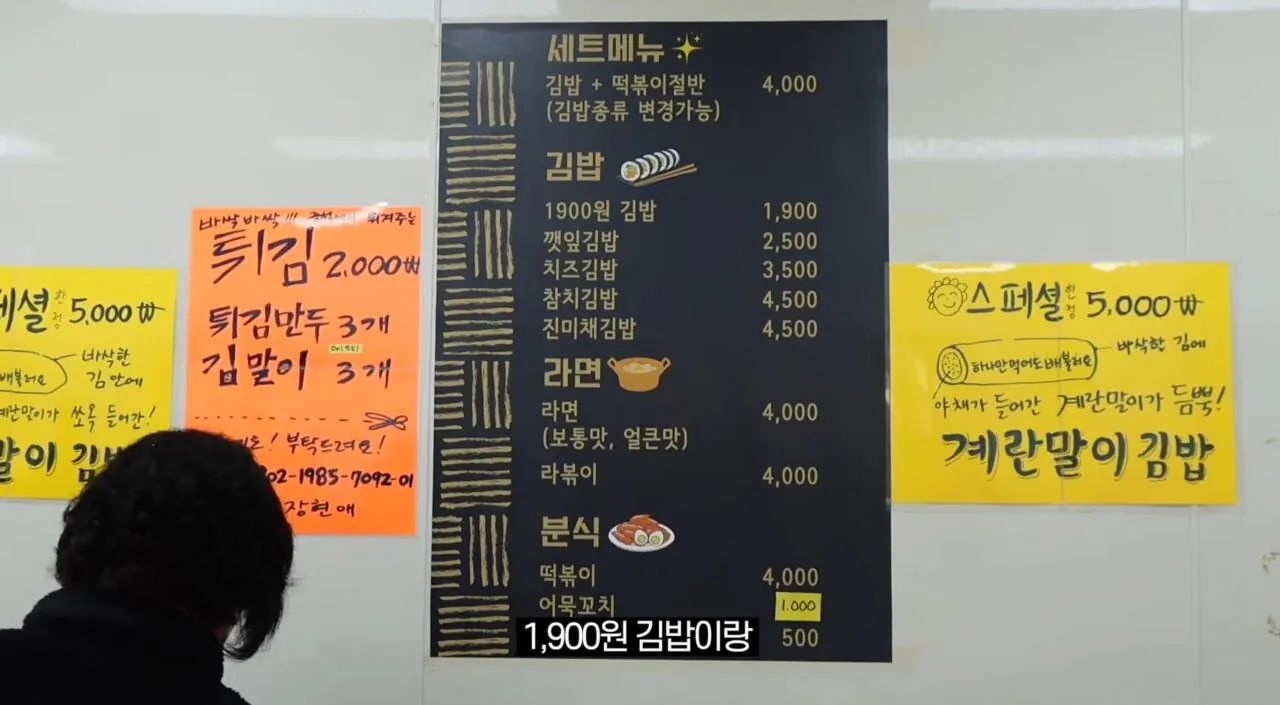 세트메뉴
김밥 + 떡볶이절반 4,000
(김밥종류 변경가능)
김밥
1900원 김밥 1,900
깻잎김밥 2,500
치즈김밥 3,500
참치김밥 4,500
진미채김밥 4,500
라면
라면 4,000
(보통맛, 얼큰맛)
라볶이 4,000
분식
떡볶이 4,000
어묵꼬치 1.000
500
바삭바삭!!! 튀겨주는
튀김 2,000₩
튀김만두 3개
김말이 3개
부탁드려요!
02-1985-7092-01
장현애
셜 한정 5,000₩
바삭한
김 안에
배불러요
계란말이가 쏘옥 들어간!
말이 김
스페셜 한정 5,000₩
하나만먹어도배불러요 바삭한 김에
야채가 들어간 계란말이가 듬뿍!
계란말이김밥
1,900원 김밥이랑